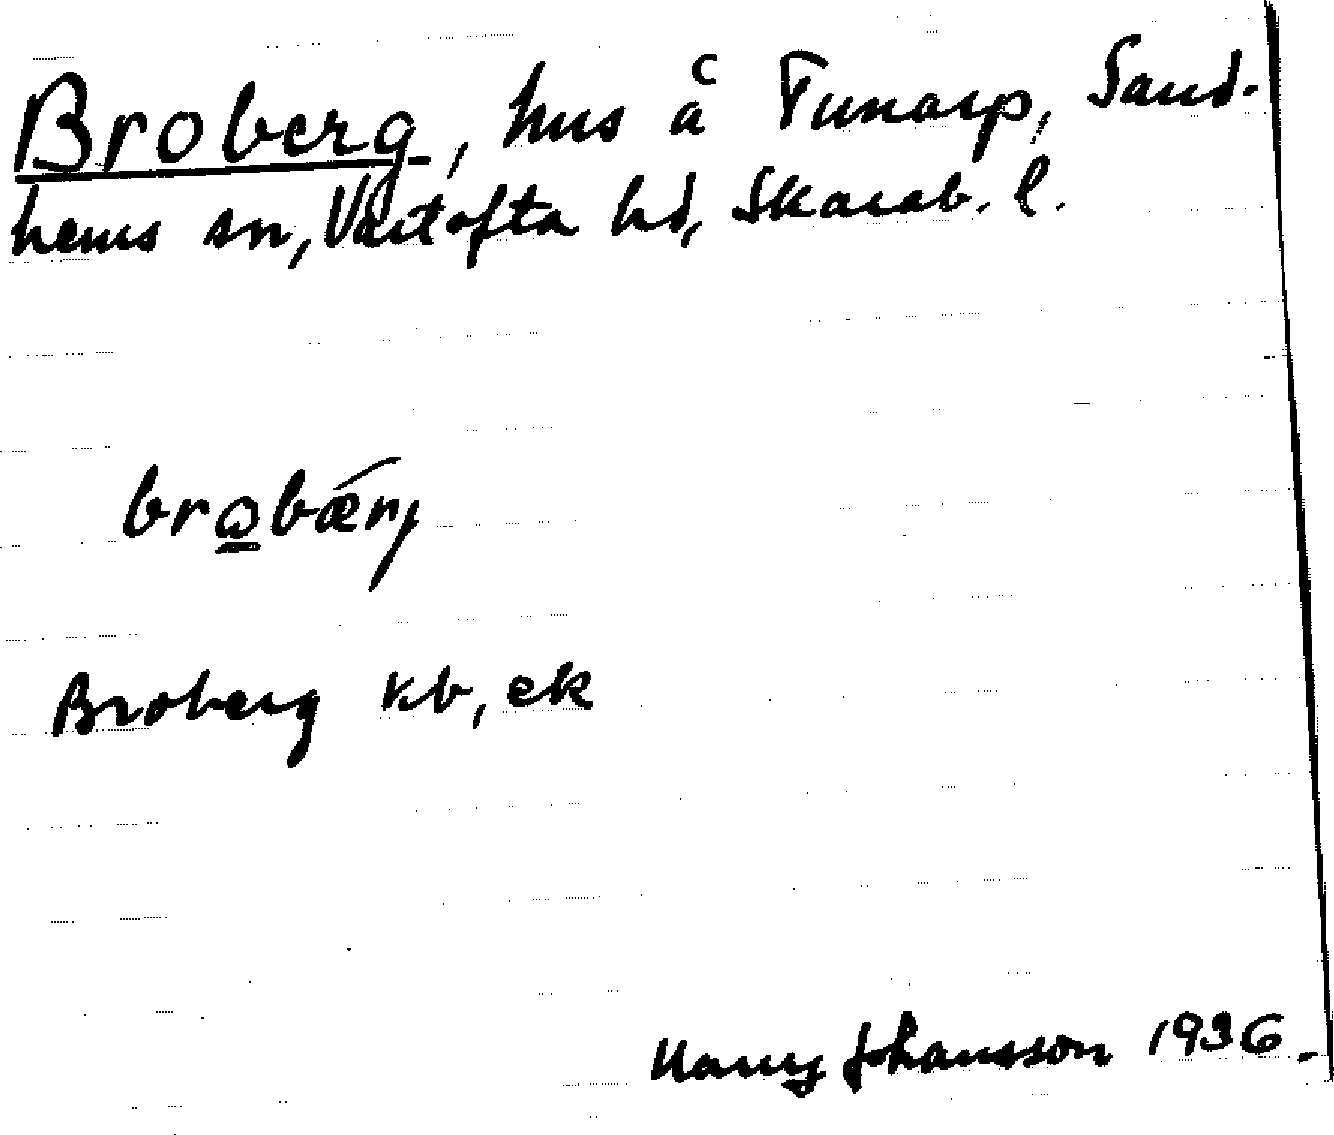 Broberg, hus å Tunarp, Sand-
hems sn, Vartofta hd, Skarab. l.
brω̲bǽrj
Broberg kb, ek
Harry Johansson 1936.